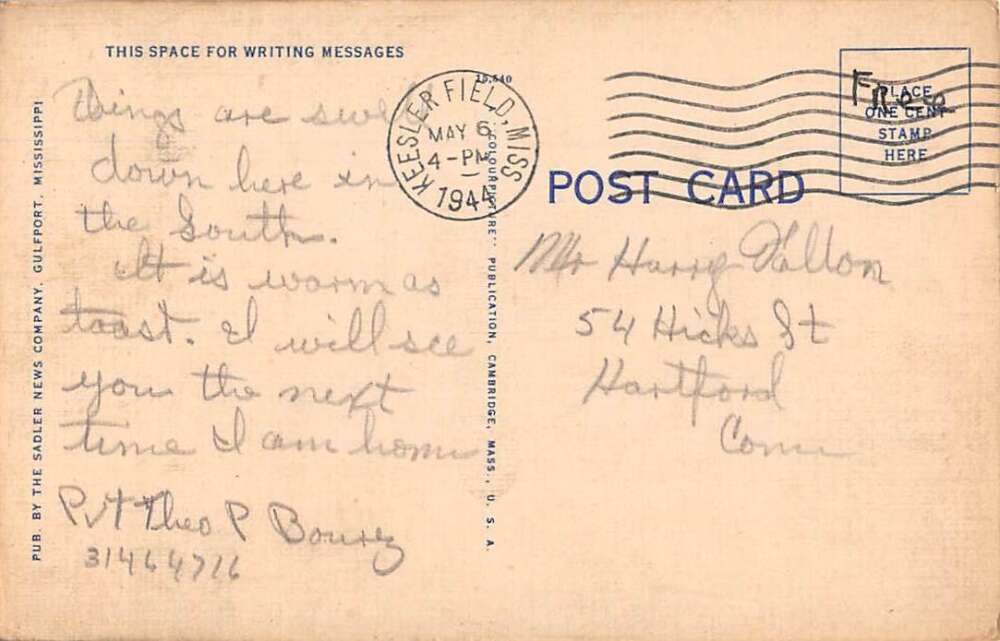 THIS SPACE FOR WRITING MESSAGES
Things are
down here in
the South.
It is warm as
toast. I will see
you the next
time I am home
Pvt Theo P
31464716
PUB. BY THE SADLER NEWS COMPANY, GULFPORT, MISSISSIPPI
15,640
COLOURPICTURE" PUBLICATION, CAMBRIDGE, MASS., U. S. A.
KEESLER FIELD, MISS
MAY 6
4-PM
1944
POST CARD
Free
PLACE
ONE CENT
STAMP
HERE
Mr Harry Fallon
54 Hicks St
Hartford
Conn